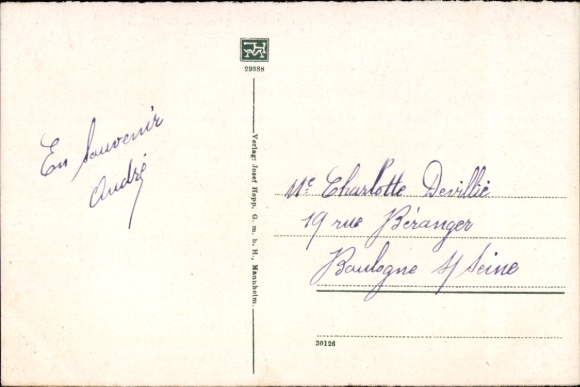 29388
En Souvenir
André
Verlag: Josef Hopp, G. m. b. H., Mannheim.
Mᵉ Charlotte Devillié
19 rue Béranger
Boulogne s/ Seine
30126